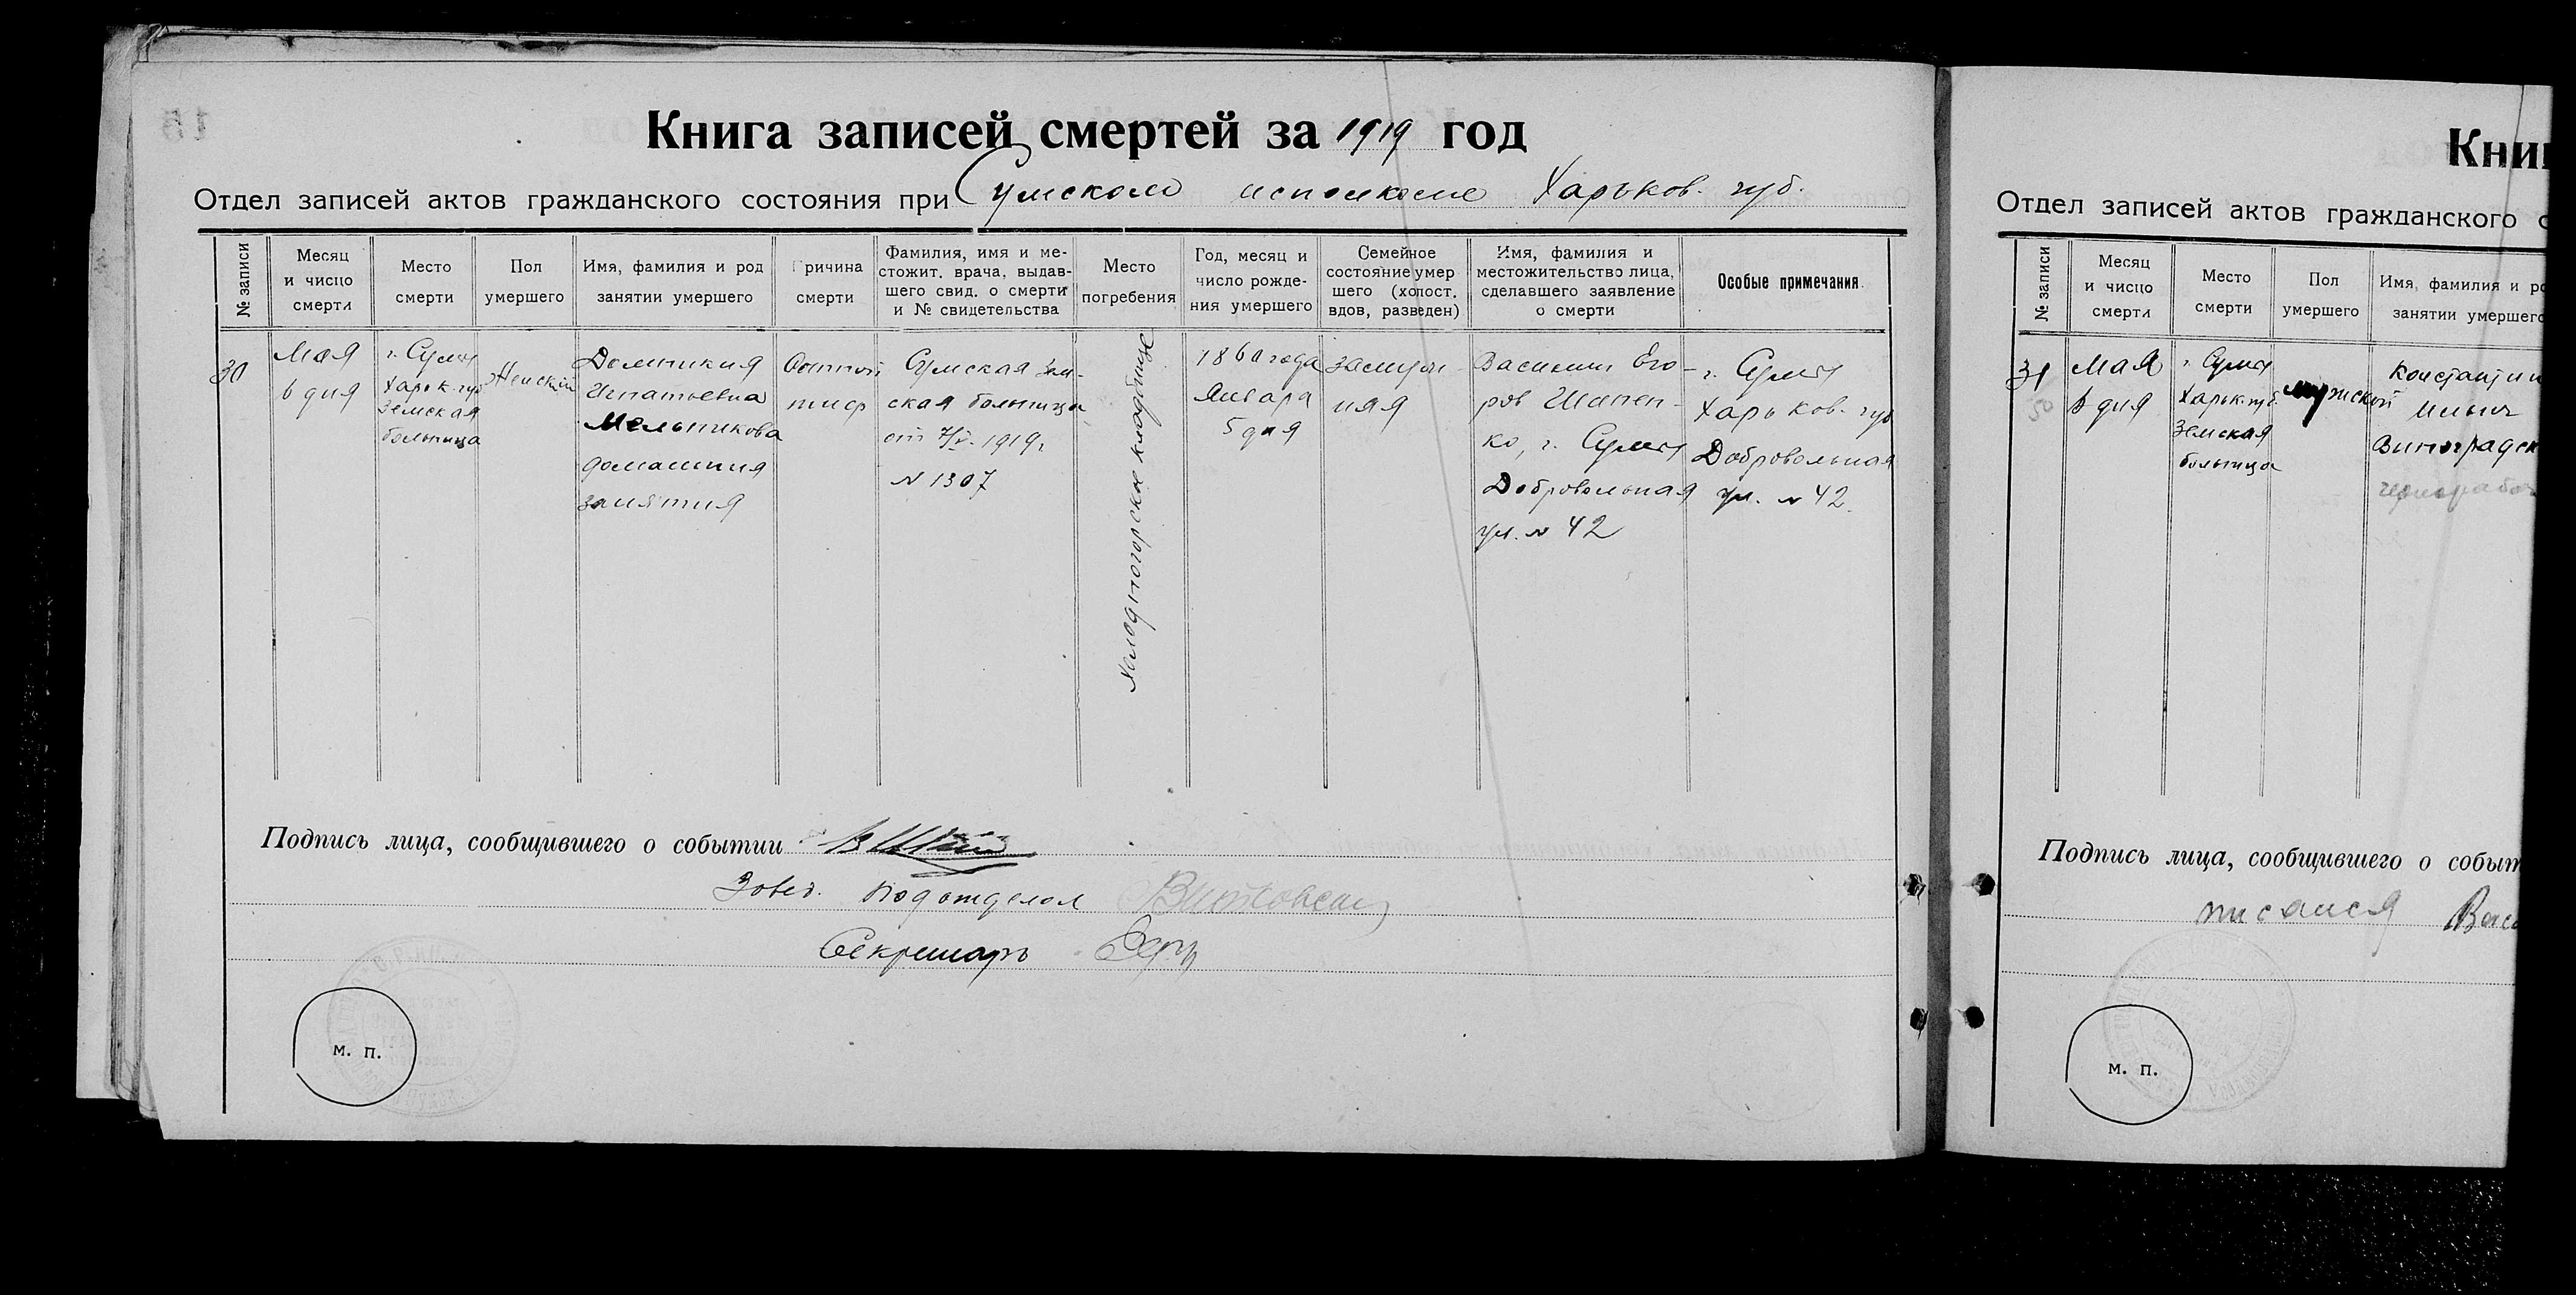 Книга записей смертей за 1919 год
Отдел записей актов гражданского состояния при Сумском исполкоме Харьков. губ.
№ записи
Месяц
и число
смерти
Место
смерти
Пол
умершего
Имя, фамилия и род
занятии умершего
Причина
смерти
Фамилия, имя и ме-
стожит. врача, выдав-
шего свид. о смерти
и № свидетельства
Место
погребения
Год, месяц и
число рожде-
ния умершего
Семейное
состояние умер
шего (холост.
вдов, разведен)
Имя, фамилия и
местожительство лица,
сделавшего заявление
о смерти
Особые примечания.
30
Мая
6 дня
г. Сумы
Харьк. губ
Земская
больница
Женский
Домникия
Игнатьевна
Мельникова
домашния
занятия
тиф
Сумская зем-
ская больница
от 7/V-1919 г.
№ 1307
кладбище
186 года
Января
5 дня
замуж-
няя
Василий Его-
ров Шапен-
ко, г. Сумы
Добровольная
ул. № 42
г. Сумы
Харьков. губ
Добровольная
ул. № 42.
Подпись лица, сообщившего о событии
Завед. подотделом
Секретарь
м. п.
Книг
Отдел записей актов гражданского с
№ записи
Месяц
и число
смерти
Место
смерти
Пол
умершего
Имя, фамилия и ро
занятии умершего
31
Мая
6 дня
г. Сумы
Харьк. губ.
Земская
больница
мужской
Константин
Ильич
Виноградск
чернорабоч
Подпись лица, сообщившего о событ
писался Васи
м. п.